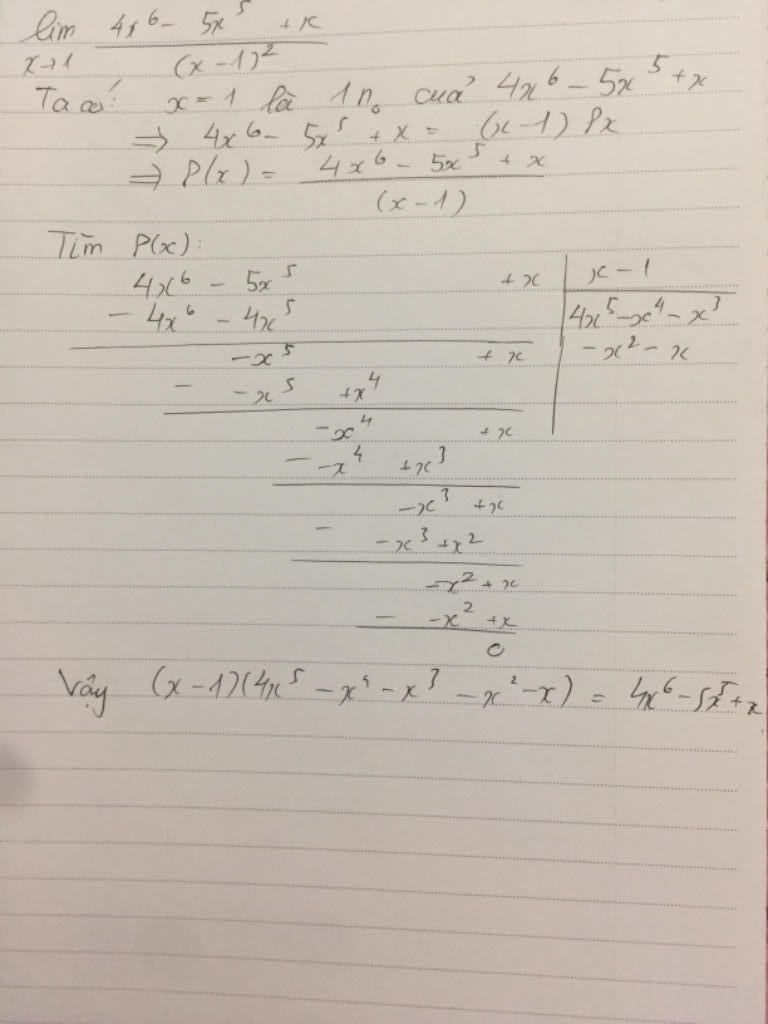 lim 4x⁶ - 5x⁵ + x
x→1 (x - 1)²
Ta có: x = 1 là 1 n₀ của 4x⁶ - 5x⁵ + x
⇒ 4x⁶ - 5x⁵ + x = (x - 1) Px
⇒ P(x) = 4x⁶ - 5x⁵ + x
(x - 1)
Tìm P(x):
4x⁶ - 5x⁵ + x | x - 1
- 4x⁶ - 4x⁵ | 4x⁵ - x⁴ - x³
-x⁵ + x | - x² - x
- -x⁵ + x⁴
-x⁴ + x
- -x⁴ + x³
-x³ + x
- -x³ + x²
-x² + x
- -x² + x
0
Vậy (x - 1)(4x⁵ - x⁴ - x³ - x² - x) = 4x⁶ - 5x⁵ + x